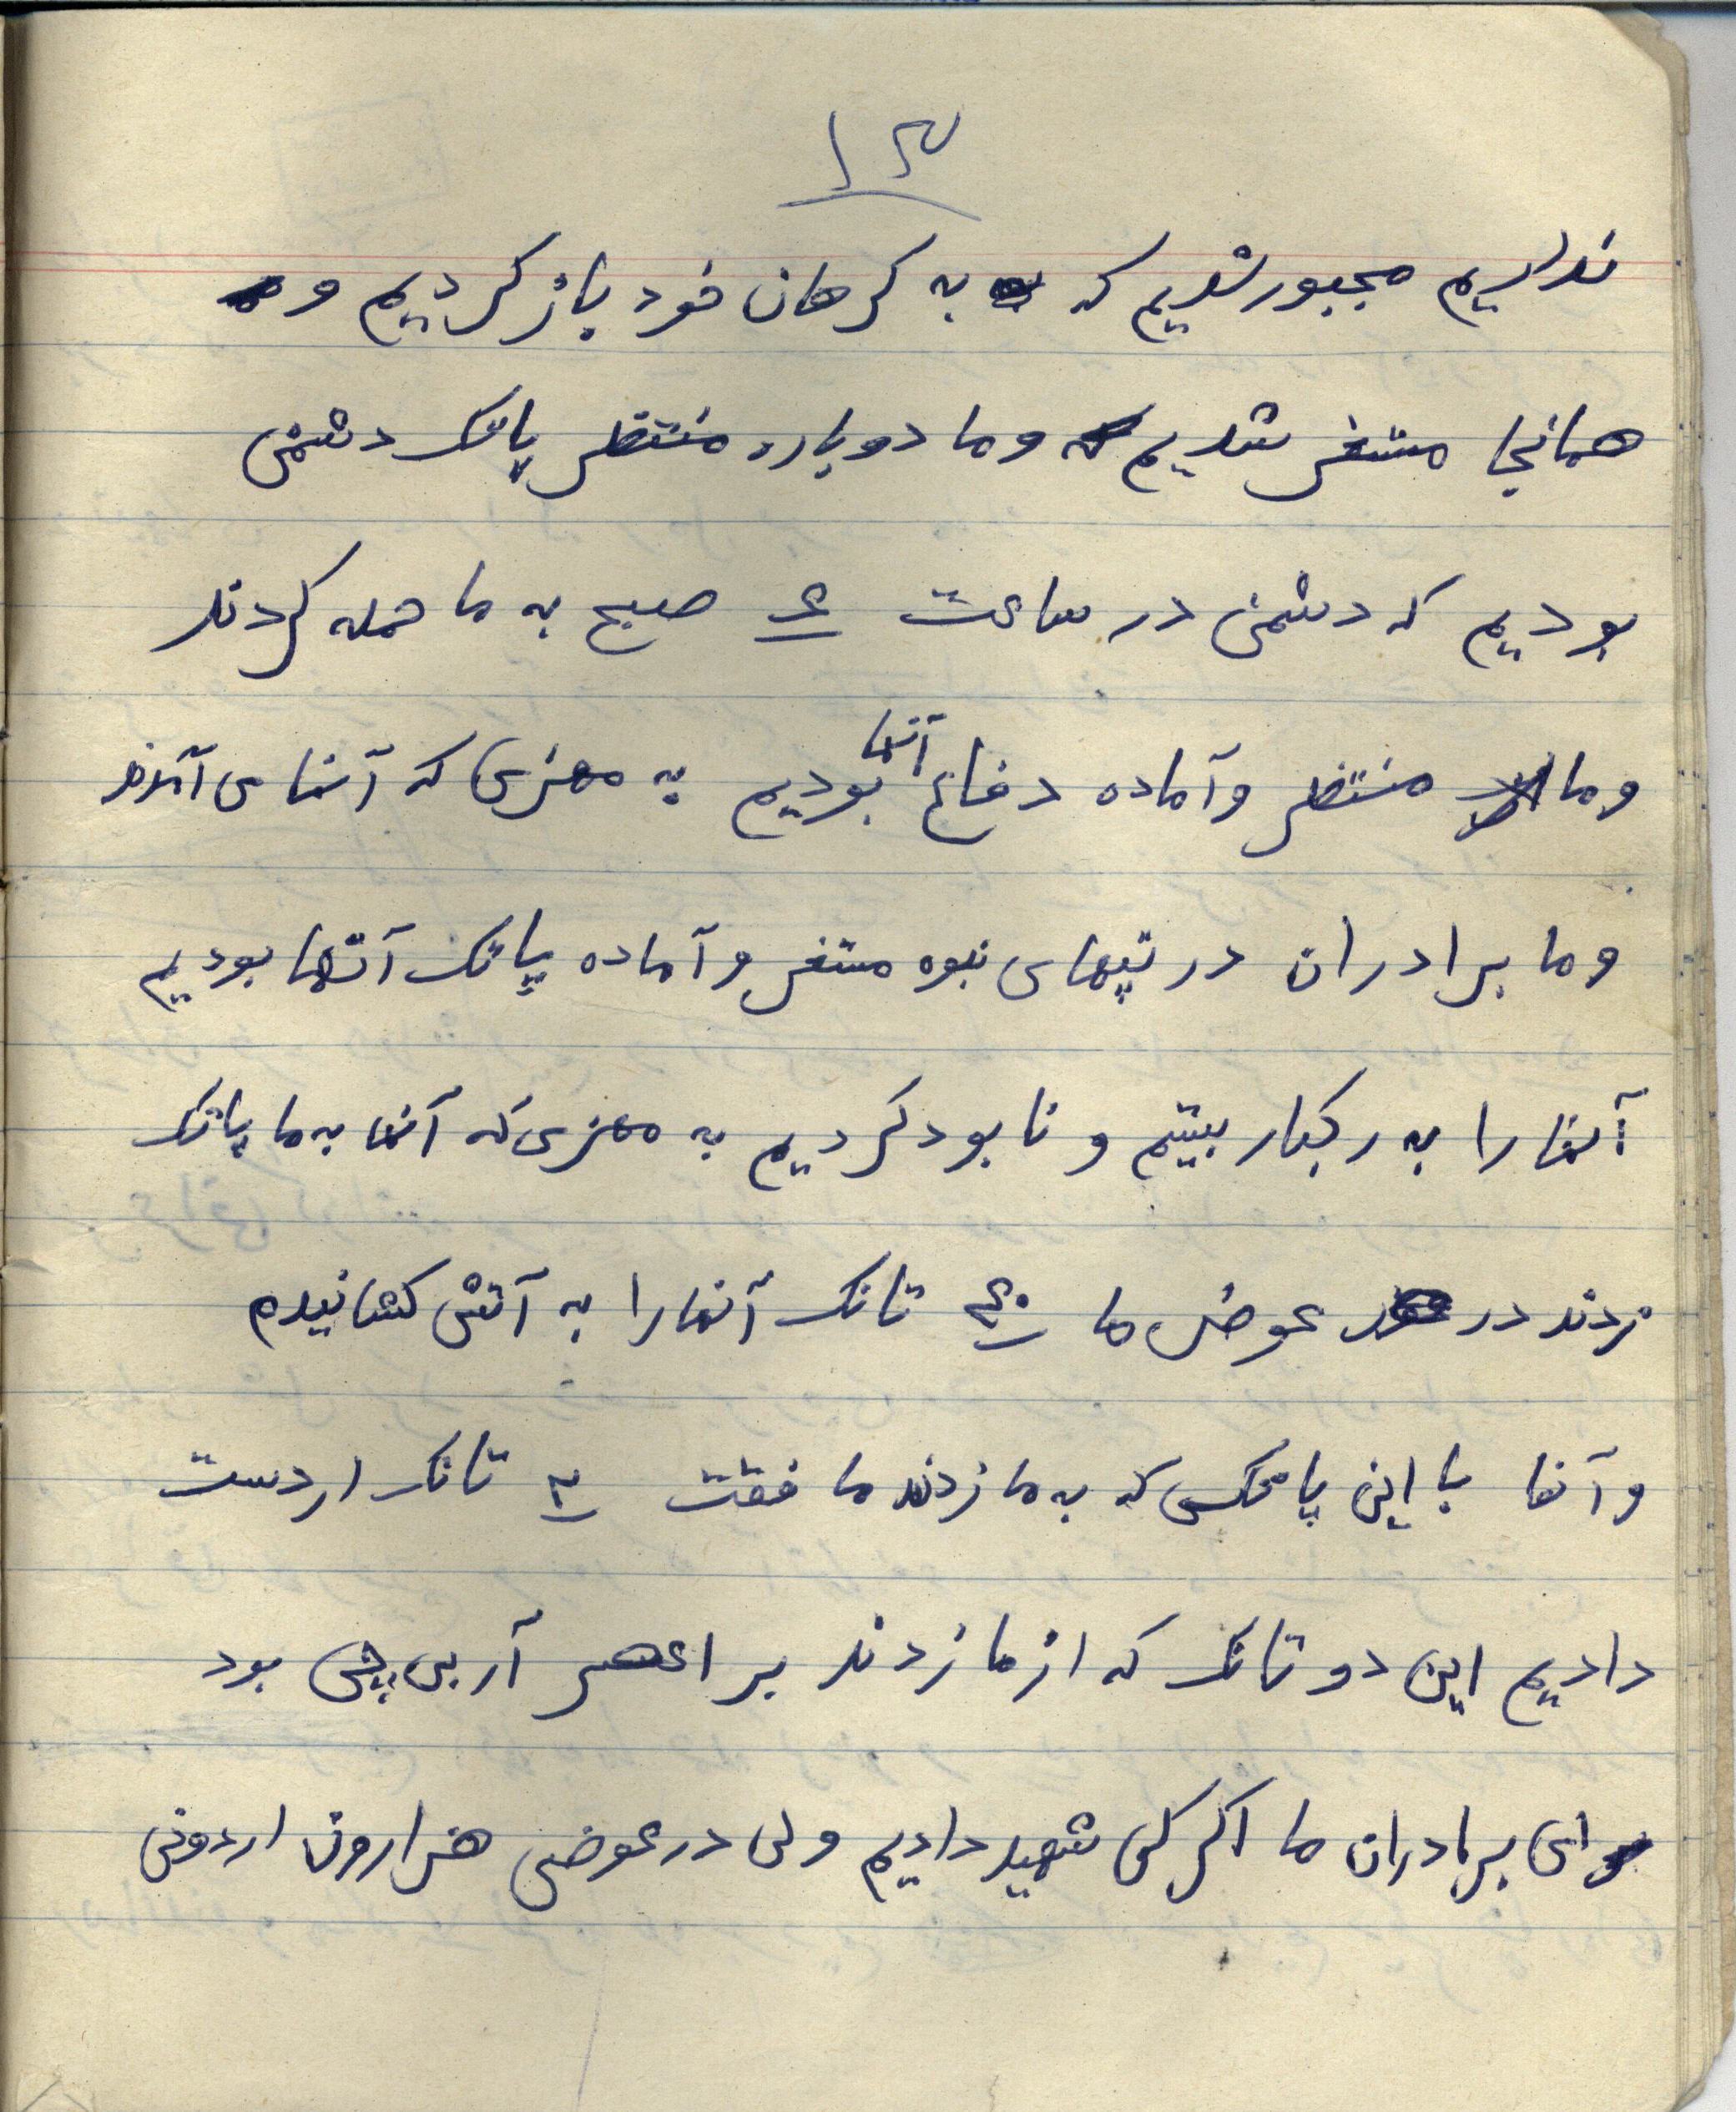 ۱۳
نداریم مجبور شدیم که به گرهان خود باز گردیم و
همانجا مستغر شدیم و ما دوباره منتظر پاتک دشمن
بودیم که دشمن در ساعت ۴ صبح به ما حمله کردند
وما منتظر و آماده دفاع آنها بودیم به مهزی که آنها می آمدند
و ما برادران در تپهای نبوه مستغر و آماده پاتک آنها بودیم
آنها را به رکبار بستیم و نابود کردیم به مهزی که آنها به ما پاتک
زدند در عوض ما ۴۰ تانک آنها را به آتش کشانیدم
و آنها با این پاتکی که به ما زدند ما فقت ۲ تانک از دست
دادیم این دو تانک که از ما زدند بر اعصر آر بی چی بود
ای برادران ما اگر کی شهید دادیم ولی در عوض هزارون اردونی